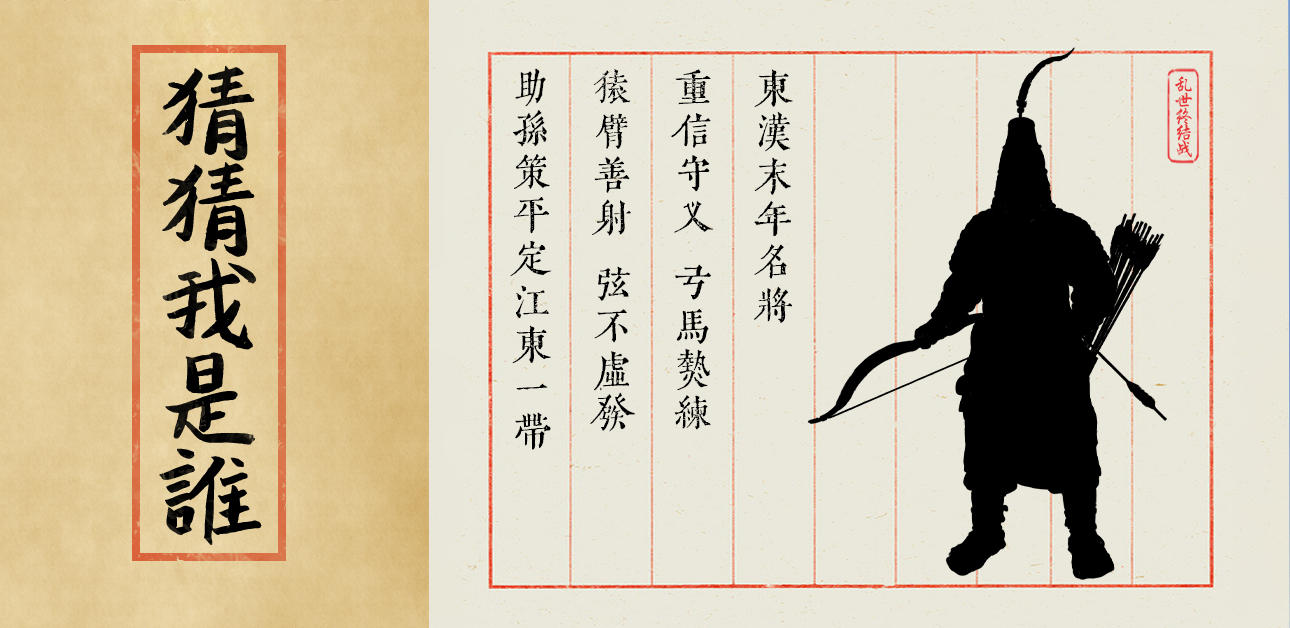 猜猜我是誰
乱世终结战
東漢末年名將
重信守义 弓馬熟練
猿臂善射 弦不虛發
助孫策平定江東一帶